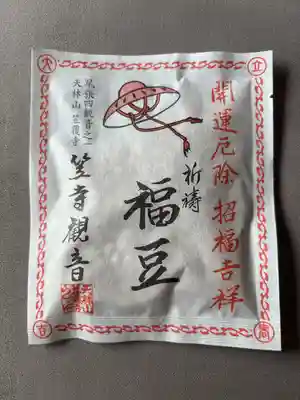 立
大
開運厄除 招福吉祥
祈禱
福豆
尾張四観音之一
天林山 笠覆寺
笠寺觀音
春
吉